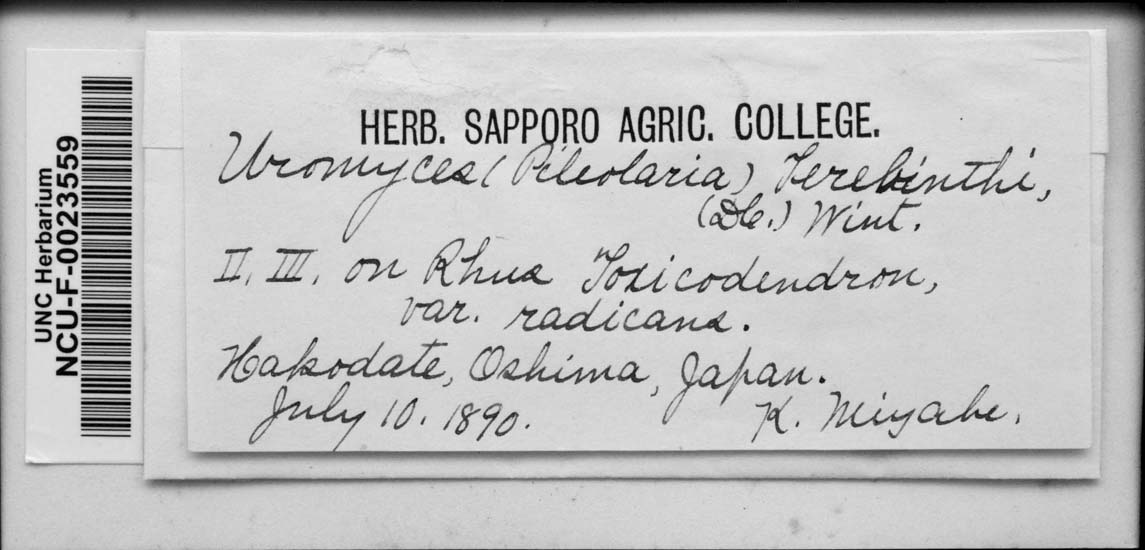 HERB. SAPPORO AGRIC. COLLEGE.
Uromyces (Pileolaria) Terebinthi,
(DC.) Wint.
II, III. on Rhus Toxicodendron,
var. radicans.
Hakodate, Oshima, Japan.
July 10. 1890.
K. Miyabe.
UNC Herbarium
NCU-F-0023559